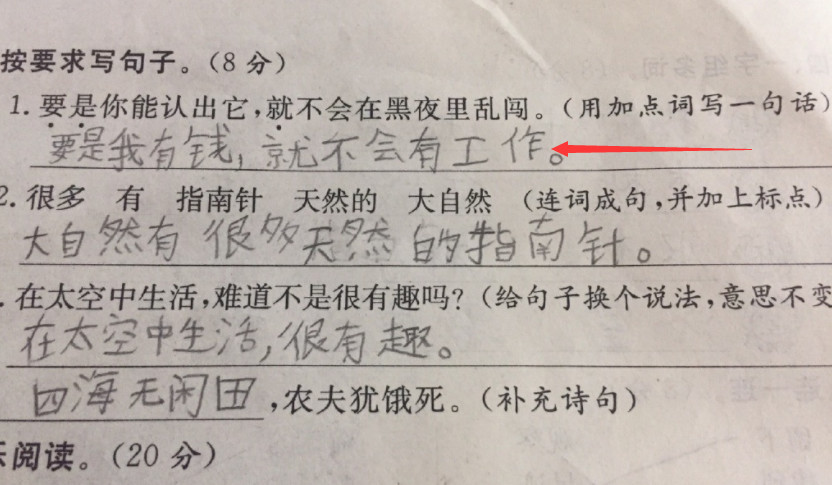 按要求写句子。(8分)
1.要是你能认出它,就不会在黑夜里乱闯。(用加点词写一句话)
要是我有钱,就不会有工作。
2.很多 有 指南针 天然的 大自然 (连词成句,并加上标点)
大自然有很多天然的指南针。
.在太空中生活,难道不是很有趣吗?(给句子换个说法,意思不变
在太空中生活,很有趣。
四海无闲田,农夫犹饿死。(补充诗句)
阅读。(20分)